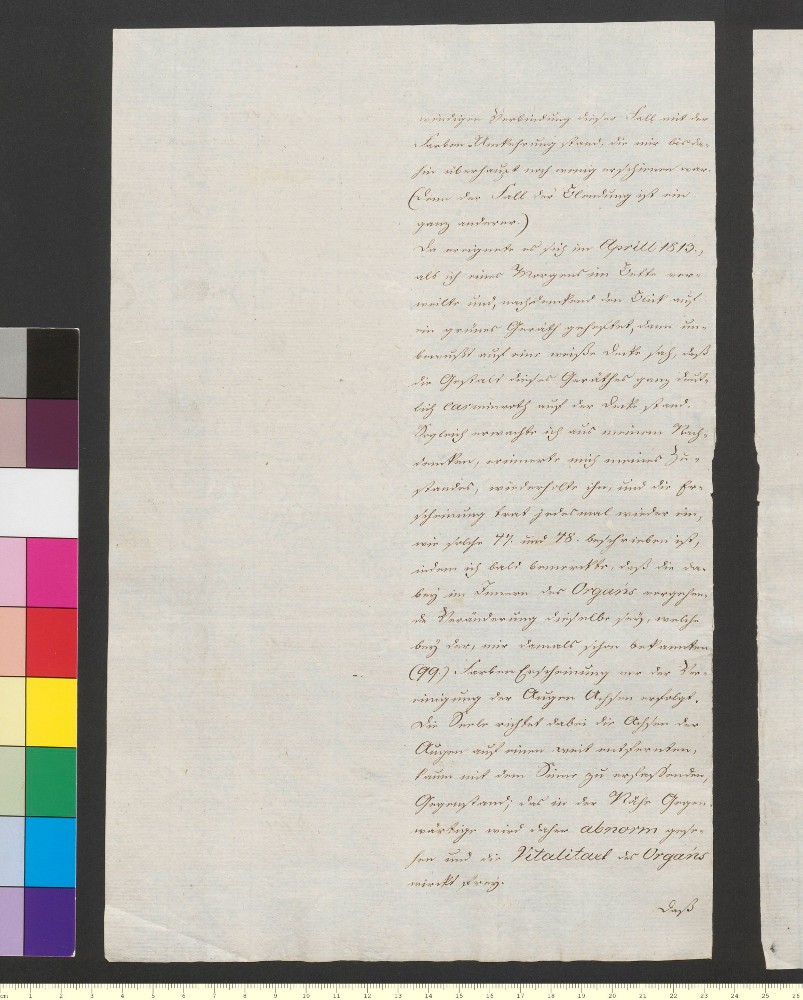 wendigen Verbindung dieser Fall mit der
Farben-Umkehrung stand, die mir bis da-
hin überhaupt noch wenig erschienen war.
(Denn der Fall der Blendung ist ein
ganz anderer.)
Da ereignete es sich im Aprill 1813.,
als ich eines Morgens im Bette ver-
weilte und, nachdenkend den Blick auf
ein grünes Geräth geheftet, dann un-
bewußt auf eine weiße Decke sah, daß
die Gestalt dieses Geräthes ganz deut-
lich carminroth auf der Decke stand.
Sogleich erwachte ich aus meinem Nach-
denken, erinnerte mich meines Zu-
standes, wiederholte ihn, und die Er-
scheinung trat jedesmal wieder ein,
wie solche 77. und 78. beschrieben ist,
indem ich bald bemerkte, daß die da-
bey im Innern des Organs vorgehen-
de Veränderung dieselbe sey, welche
bey der, mir damals schon bekannten
(99.) Farben Erscheinung vor der Ver-
einigung der Augen Achsen erfolgt.
Die Seele richtet dabei die Achsen der
Augen auf einen weit entfernten,
kaum mit dem Sinne zu erfassenden,
Gegenstand; das in der Nähe Gegen-
wärtige wird daher abnorm gese-
hen und die Vitalitaet des Organs
wirkt frey.
Daß